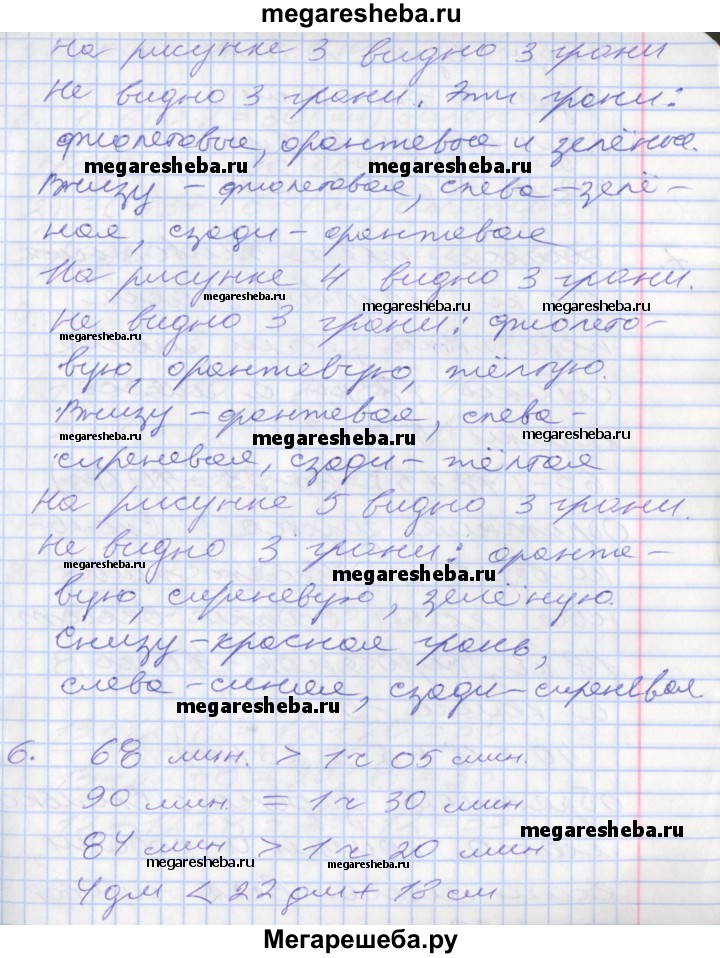 megaresheba.ru
На рисунке 3 видно 3 грани
Не видно 3 грани. Эти грани:
фиолетовые, оранжевые и зелёные.
megaresheba.ru megaresheba.ru
Внизу – фиолетовая, слева – зелё-
ная, сзади – оранжевая
На рисунке 4 видно 3 грани.
megaresheba.ru megaresheba.ru megaresheba.ru
Не видно 3 грани: фиолето-
megaresheba.ru
вую, оранжевую, жёлтую.
Внизу – оранжевая, слева –
megaresheba.ru megaresheba.ru megaresheba.ru
сиреневая, сзади – жёлтая
На рисунке 5 видно 3 грани.
Не видно 3 грани: оранже-
megaresheba.ru megaresheba.ru
вую, сиреневую, зелёную.
Снизу – красная грань,
слева – синяя, сзади – сиреневая.
megaresheba.ru
6. 68 мин. > 1 ч 05 мин.
90 мин. = 1 ч 30 мин
megaresheba.ru
84 мин > 1 ч 20 мин
megaresheba.ru megaresheba.ru
4 дм < 22 дм + 18 см
Мегарешеба.ру